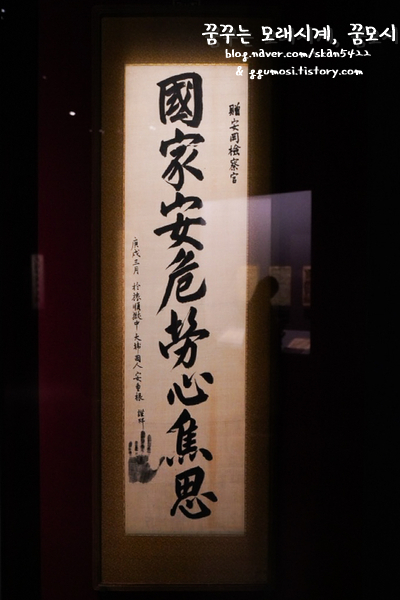 꿈꾸는 모래시계, 꿈모시
blog.naver.com/skan5422
& ggumosi.tistory.com
贈安岡檢察官
國家安危勞心焦思
庚戌三月 於旅順獄中 大韓國人 安重根 謹拜